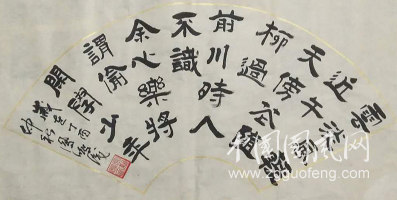 雲淡風輕
近午
天傍花隨
柳過
前川時人
不識
余心樂將
謂偷
丁酉
仲秋
中国国风网
www.zgguofeng.com